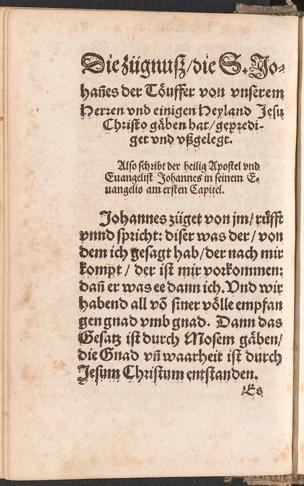 Die zügnuß/die S. Jo-
hañes der Töuffer von vnserem
Herren vnd einigen Heyland Jesu
Christo gäben hat/gepredi-
get vnd vßgelegt.
Also schribt der heilig Apostel vnd
Euangelist Johannes in seinem E-
uangelio am ersten Capitel.
Johannes züget von jm/rüfft
vnnd spricht: diser was der/von
dem ich gesagt hab/der nach mir
kompt/der ist mir vorkommen:
dañ er was ee dann ich. Vnd wir
habend all võ siner völle empfan
gen gnad vmb gnad. Dann das
Gesatz ist durch Mosem gäben/
die Gnad vñ waarheit ist durch
Jesum Christum entstanden.
Es